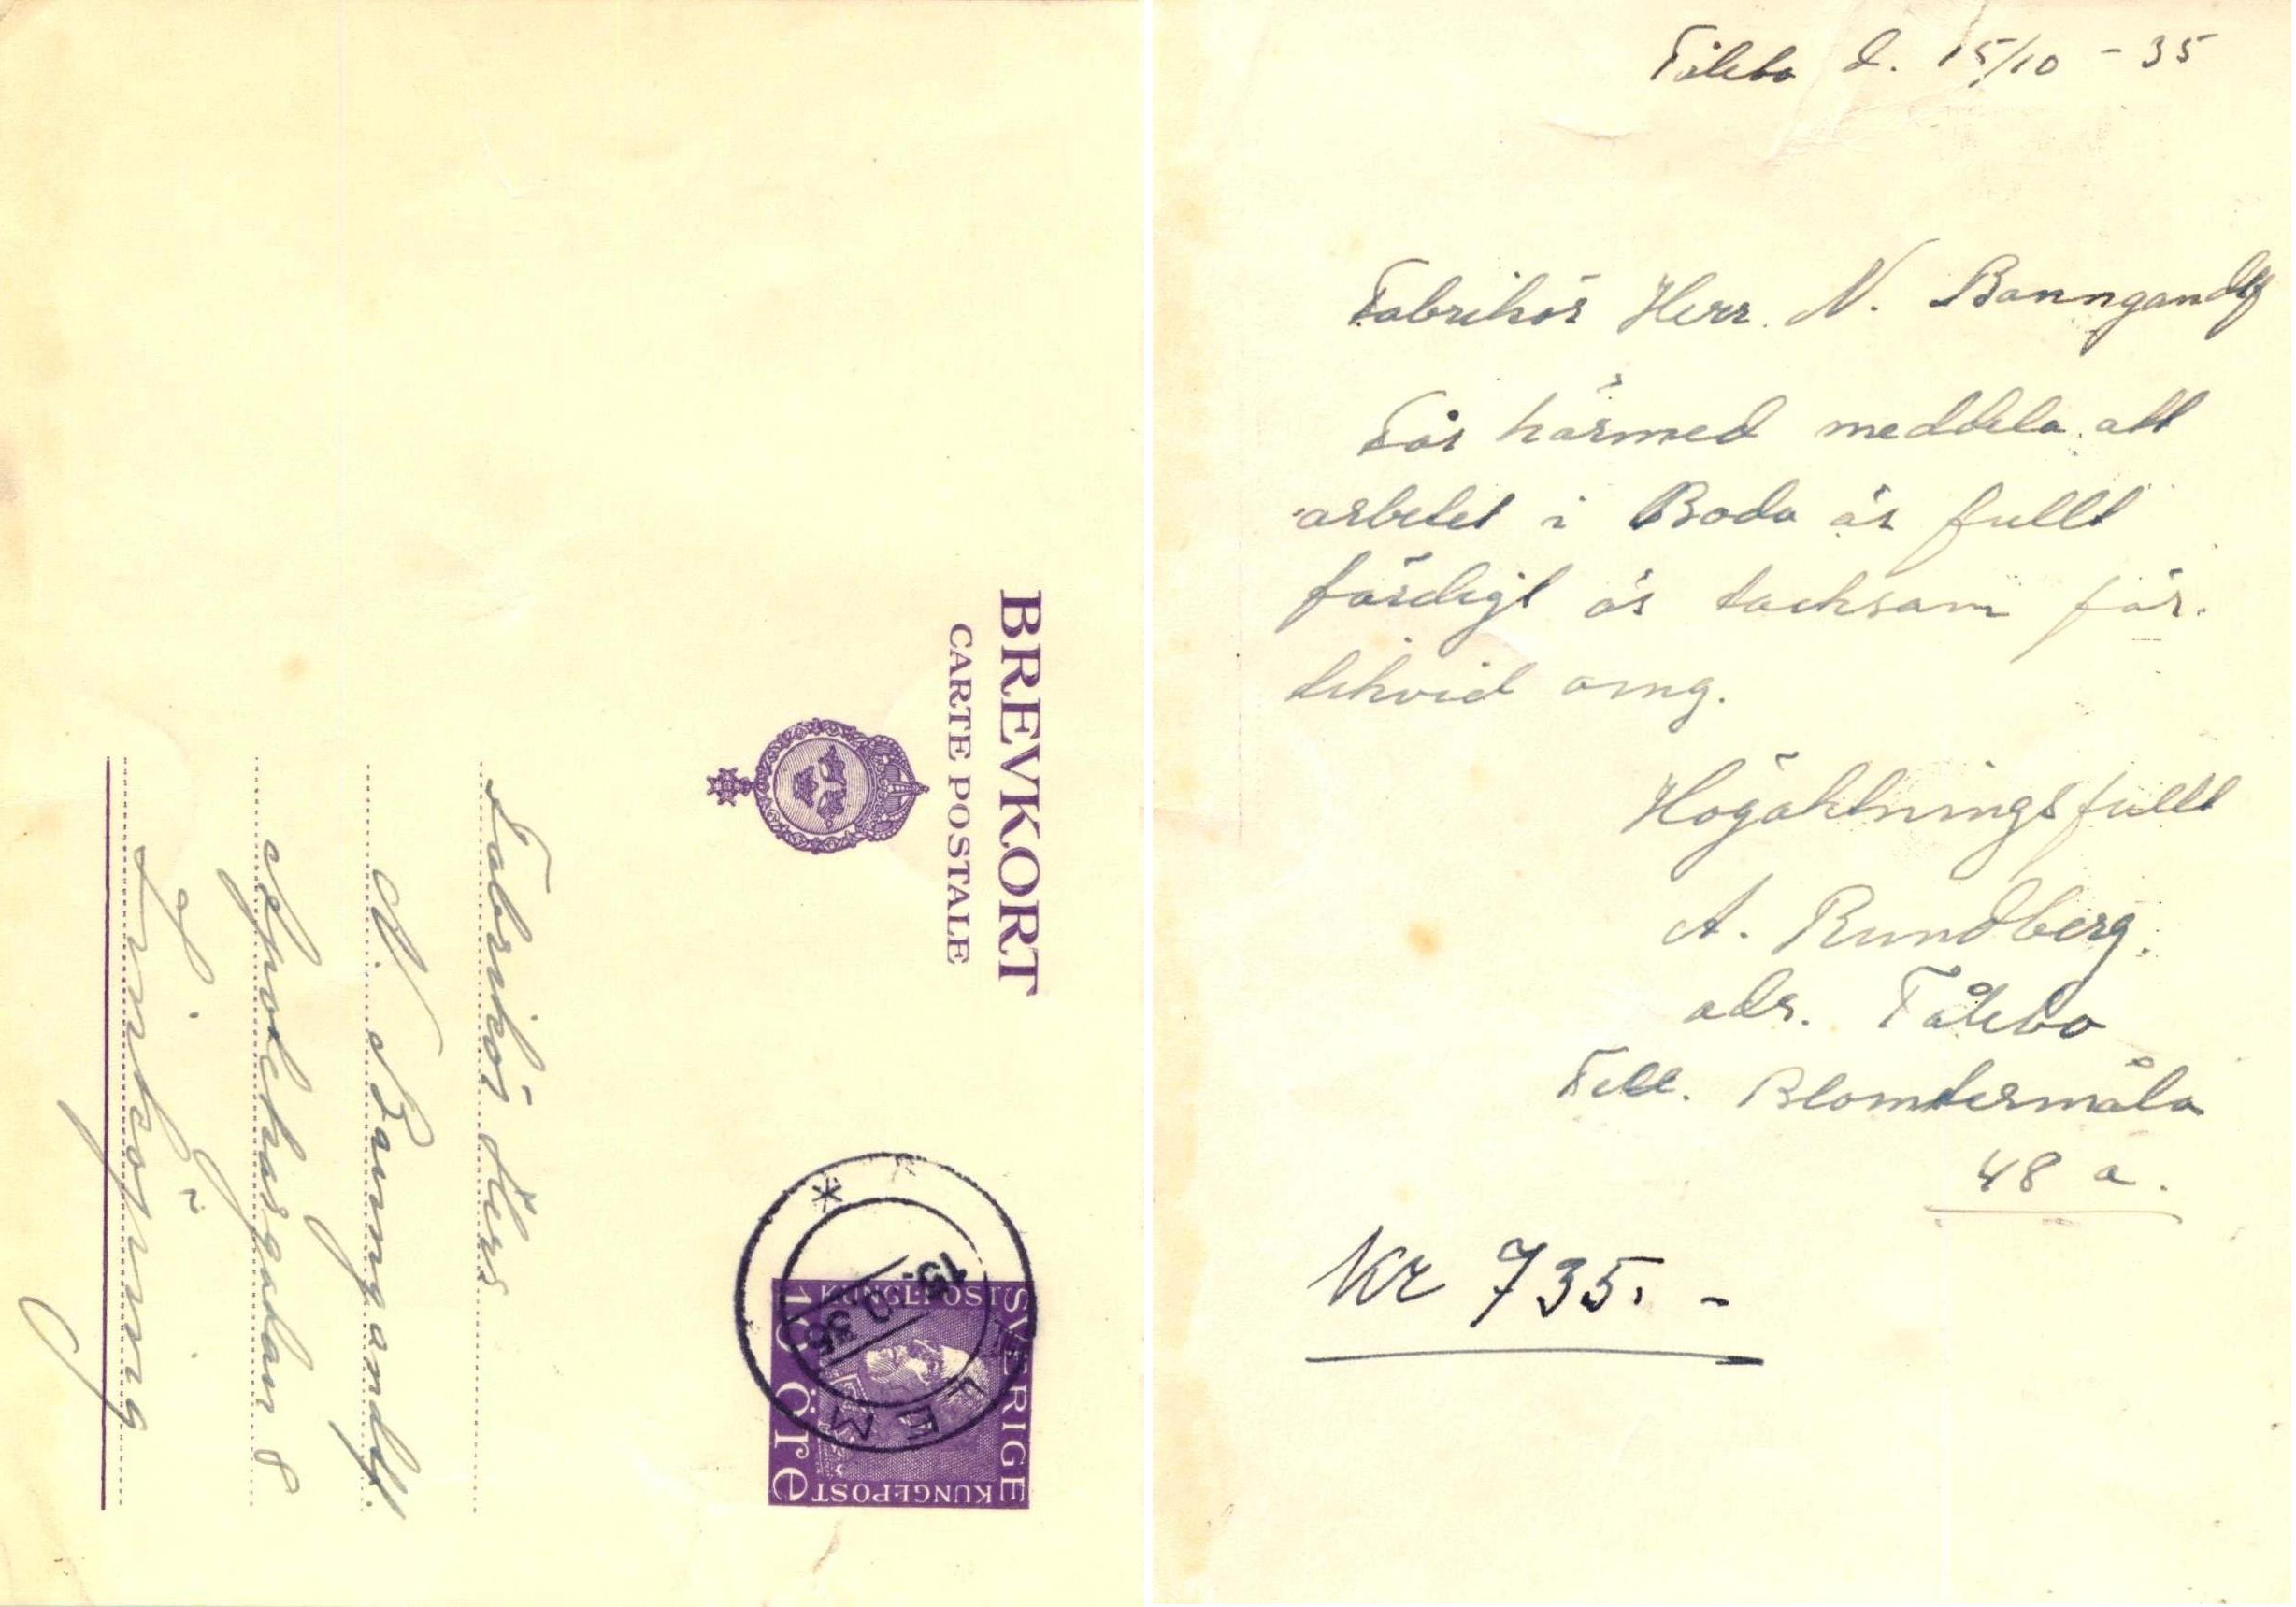 BREVKORT
CARTE POSTALE
SVERIGE
KUNGL·POST
KUNGL·POST
10 öre
15
35
Fabrikör Herr
N. Baumgardt.
Apotekaregatan 8
Linköping
Fålebo d. 15/10 - 35
Fabrikör Herr. N. Banngandt
Får härmed meddela att
arbetet i Boda är fullt
färdigt är tacksam för
likvid omg.
Högaktningsfullt
A. Rundberg.
adr. Fålebo
Tell. Blomstermåla
48 a.
Kr 735. -